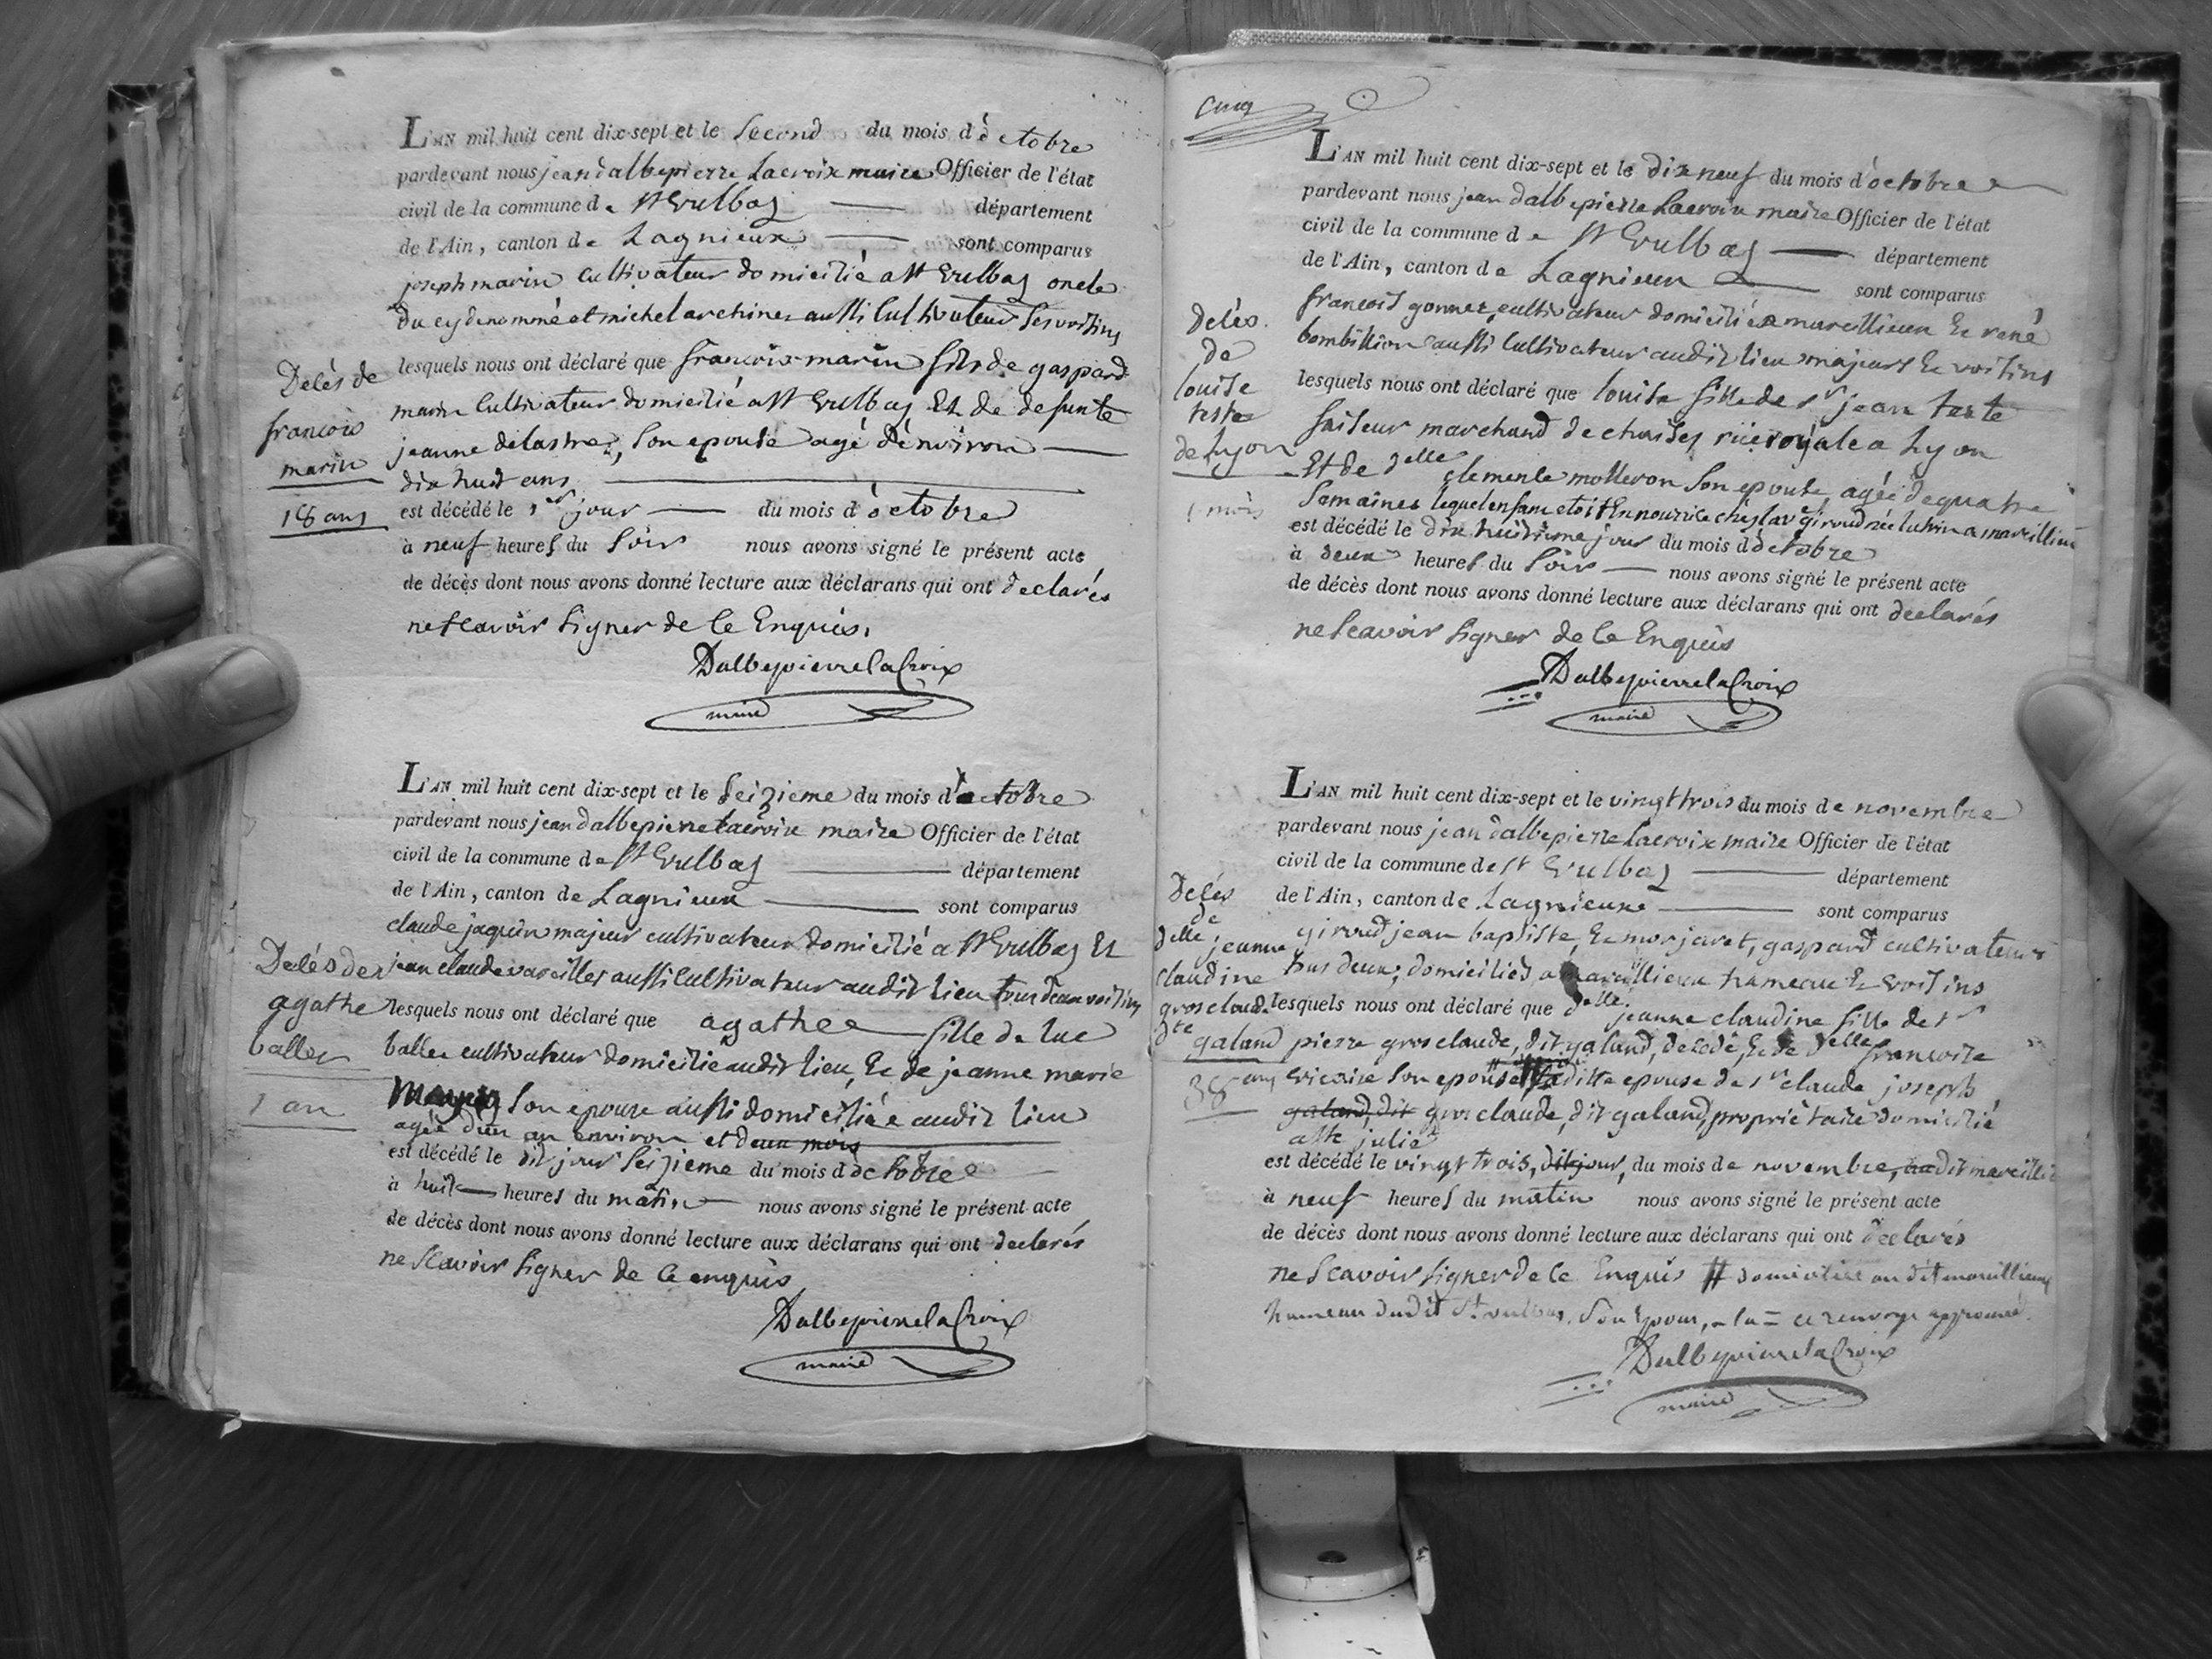 L'AN mil huit cent dix-sept et le second du mois d'octobre
pardevant nous jean dalbepierre Lacroix maire Officier de l'état
civil de la commune de St Vulbas département
de l'Ain, canton de Lagnieux sont comparus
joseph marin cultivateur domicilié a St Vulbas oncle
du cy denommé et michel archiner aussi cultivateur ses voisins
Delés de
françois
marin
18 ans
lesquels nous ont déclaré que françois marin fils de gaspard
marin cultivateur domicilié a St Vulbas Et de defunte
jeanne delastre, son epouse agé d'environ
dix huit ans
est décédé le 1er jour du mois d'octobre
à neuf heures du soir nous avons signé le présent acte
de décès dont nous avons donné lecture aux déclarans qui ont declarés
ne scavoir signer de ce Enquis.
Dalbepierre laCroix
maire
L'AN mil huit cent dix-sept et le seizieme du mois d'octobre
pardevant nous jean dalbepierre lacroix maire Officier de l'état
civil de la commune de St Vulbas département
de l'Ain, canton de Lagnieux sont comparus
claude jaquin majeur cultivateur domicilié a St Vulbas Et
jean claude vareilles aussi cultivateur audit lieu tous deux voisins
Delés der
agathe
baller
1 an
lesquels nous ont déclaré que agathe fille de luc
baller cultivateur domicilié audit lieu, Ee de jeanne marie
son epouse aussi domiciliée audit lieu
agée d'un an environ et deux mois
est décédé le dit jour seizieme du mois d'octobre
à huit heures du matin nous avons signé le présent acte
de décès dont nous avons donné lecture aux déclarans qui ont declarés
ne scavoir signer de ce enquis
Dalbepierre laCroix
maire
Cinq
L'AN mil huit cent dix-sept et le dix neuf du mois d'octobre
pardevant nous jean dalbepierre Lacroix maire Officier de l'état
civil de la commune de St Vulbas département
de l'Ain, canton de Lagnieux sont comparus
françois gonnet, cultivateur domicilié a marcillieux Ee rené
bombillion aussi cultivateur audit lieu majeurs Ee voisins
Delés.
de
louise
teste
de Lyon
1 mois
lesquels nous ont déclaré que louise fille de sr jean teste
faiseur marchand de chaises rüe royale a Lyon
Et de delle clemence molleron son epouse, agée de quatre
semaines lequel enfant etoit En nourice chés la ve giroud née luhin a marcillieux
est décédé le dix huitieme jour du mois d'octobre
à deux heures du soir nous avons signé le présent acte
de décès dont nous avons donné lecture aux déclarans qui ont declarés
ne scavoir signer de ce Enquis
Dalbepierre laCroix
maire
L'AN mil huit cent dix-sept et le vingt trois du mois de novembre
pardevant nous jean dalbepierre Lacroix maire Officier de l'état
civil de la commune de St Vulbas département
de l'Ain, canton de Lagnieux sont comparus
giroud jean baptiste, Ee morjaret, gaspard cultivateurs
tous deux, domiciliés a marcillieux hameau Ee voisins
Delés
de
delle jeanne
claudine
grosclaude
dte galand
38 ans
lesquels nous ont déclaré que delle jeanne claudine fille de sr
pierre grosclaude, dit galand, decedé, Ee de delle françoise
son epouse # laditte epouse de sr claude joseph
galand, dit grosclaude, dit galand, proprietaire domicilié
a Ste julie
est décédé le vingt trois, dit jour, du mois de novembre, audit marcillieux
à neuf heures du matin nous avons signé le présent acte
de décès dont nous avons donné lecture aux déclarans qui ont declarés
ne scavoir signer de ce Enquis # domiciliée au dit marcillieux
hameau dudit St vulbas. son Epouse, la = ce renvoye approuvé.
Dalbepierre laCroix
maire